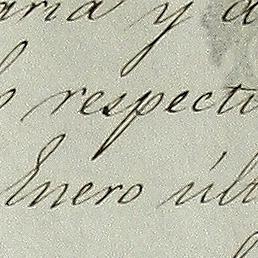 aria y a
o respecti
Enero últ